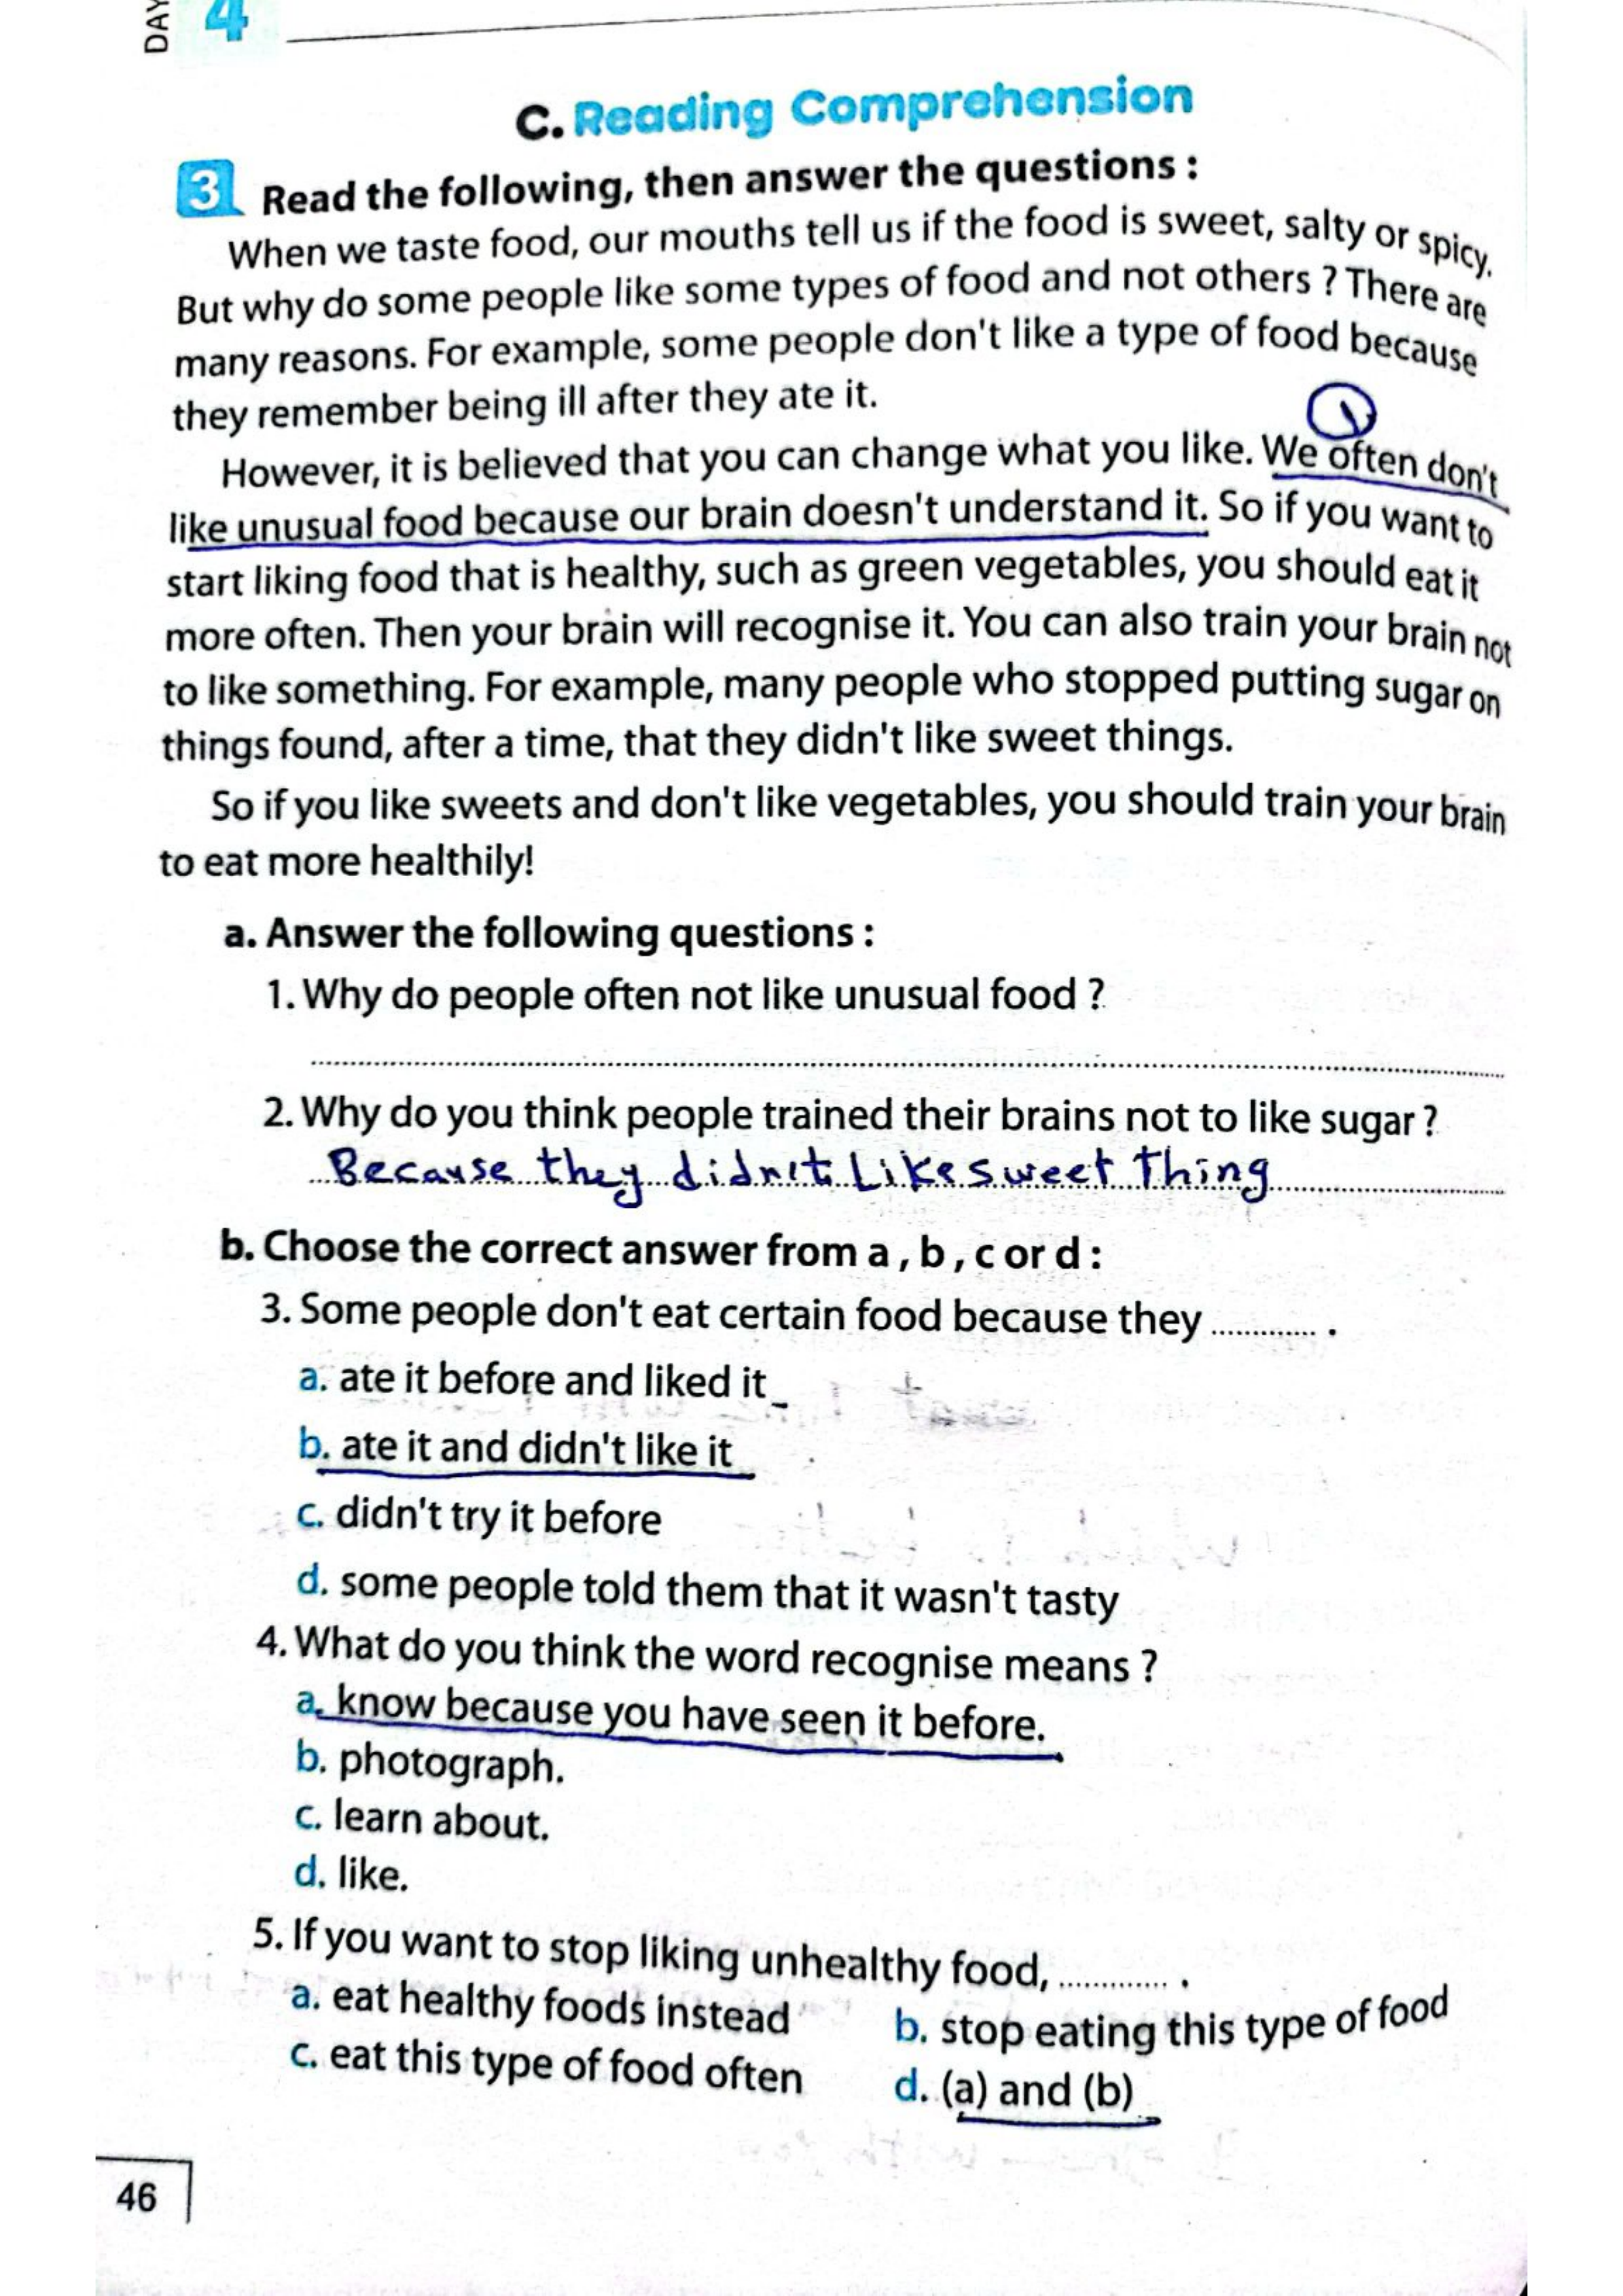 DAY 4
C. Reading Comprehension
3 Read the following, then answer the questions :
When we taste food, our mouths tell us if the food is sweet, salty or spicy.
But why do some people like some types of food and not others ? There are
many reasons. For example, some people don't like a type of food because
they remember being ill after they ate it.
1
However, it is believed that you can change what you like. We often don't
like unusual food because our brain doesn't understand it. So if you want to
start liking food that is healthy, such as green vegetables, you should eat it
more often. Then your brain will recognise it. You can also train your brain not
to like something. For example, many people who stopped putting sugar on
things found, after a time, that they didn't like sweet things.
So if you like sweets and don't like vegetables, you should train your brain
to eat more healthily!
a. Answer the following questions :
1. Why do people often not like unusual food ?
2. Why do you think people trained their brains not to like sugar ?
Because they didn't Like sweet Thing
b. Choose the correct answer from a , b , c or d :
3. Some people don't eat certain food because they ............. .
a. ate it before and liked it
b. ate it and didn't like it
c. didn't try it before
d. some people told them that it wasn't tasty
4. What do you think the word recognise means ?
a. know because you have seen it before.
b. photograph.
c. learn about.
d. like.
5. If you want to stop liking unhealthy food, ............. .
a. eat healthy foods instead b. stop eating this type of food
c. eat this type of food often d. (a) and (b)
46